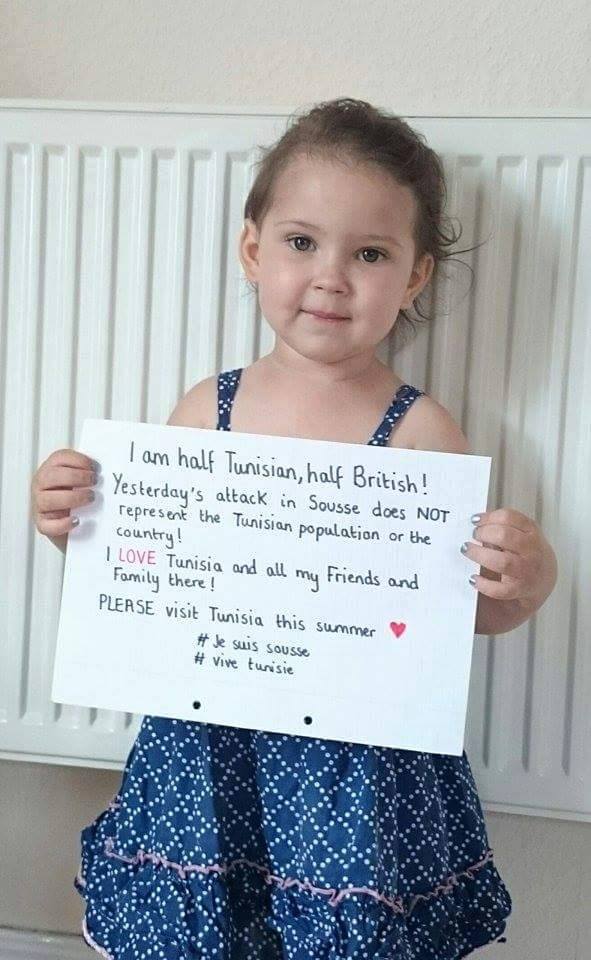 I am half Tunisian, half British!
Yesterday's attack in Sousse does NOT
represent the Tunisian population or the
country!
I LOVE Tunisia and all my Friends and
Family there!
PLEASE visit Tunisia this summer ♥
# Je suis sousse
# vive tunisie